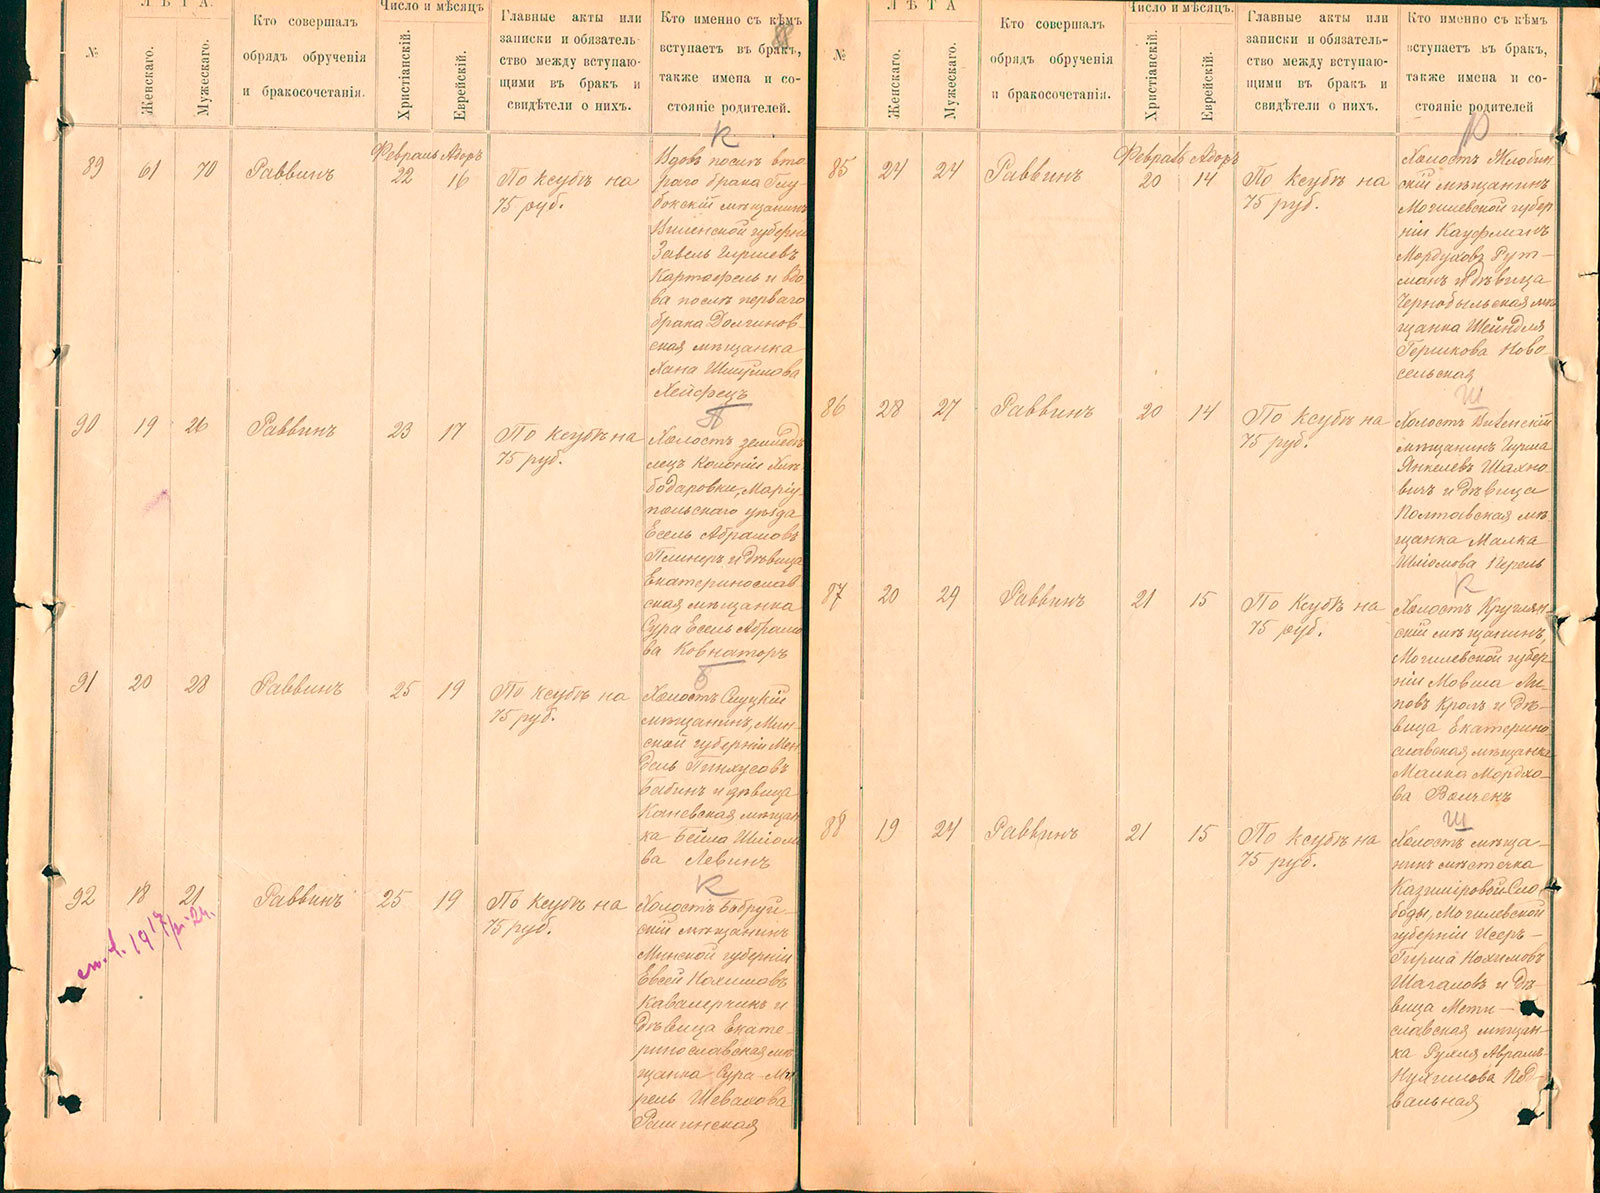 ЛѢТА.
Число и мѣсяцъ
№
Женскаго.
Мужескаго.
Кто совершалъ
обрядъ обрученія
и бракосочетанія.
Христіанскій.
Еврейскій.
Главные акты или
записки и обязатель-
ство между вступаю-
щими въ бракъ и
свидѣтели о нихъ.
Кто именно съ кѣмъ
вступаетъ въ бракъ,
также имена и со-
стояніе родителей.
К
89 61 70 Раввинъ
Февраль Адоръ
22 16
По ксубѣ на
75 руб.
Вдовъ послѣ вто-
раго брака Глу-
бокскій мѣщанинъ
Виленской губерніи
Завель Гиршевъ
Картофель и вдо-
ва послѣ перваго
брака Долгинов-
ская мѣщанка
Хана Шмуйлова
Хейфецъ
П
90 19 26 Раввинъ 23 17
По ксубѣ на
75 руб.
Холостъ земледѣ-
лецъ колоніи Хлѣ-
бодаровки, Маріу-
польскаго уѣзда
Есель Абрамовъ
Плинеръ и дѣвица
Екатеринослав
ская мѣщанка
Сура Есель Абрамо
ва Ковнаторъ
Б
91 20 28 Раввинъ 25 19
По ксубѣ на
75 руб.
Холостъ Слуцкій
мѣщанинъ, Мин-
ской губерніи Мен
дель Пинхусовъ
Бабинъ и дѣвица
Каневская мѣщан
ка Бейла Шліомо
ва Левинъ
К
92 18 21 Раввинъ 25 19
По ксубѣ на
75 руб.
Холостъ Бобруй-
скій мѣщанинъ
Минской губерніи
Евсей Нохимовъ
Кавалерчикъ и
дѣвица Екате-
ринославская мѣ
щанка Сура-Ми
рель Шевахова
Рашинская
ЛѢТА
Число и мѣсяцъ.
№
Женскаго.
Мужескаго.
Кто совершалъ
обрядъ обрученія
и бракосочетанія.
Христіанскій.
Еврейскій.
Главные акты или
записки и обязатель-
ство между вступаю-
щими въ бракъ и
свидѣтели о нихъ.
Кто именно съ кѣмъ
вступаетъ въ бракъ,
также имена и со-
стояніе родителей
Р
85 24 24 Раввинъ
Февраль Адоръ
20 14
По ксубѣ на
75 руб.
Холостъ Жлобин
скій мѣщанинъ
Могилевской губер
ніи Кауфманъ
Мордуховъ Рут-
манъ и дѣвица
Чернобыльская мѣ
щанка Шейндля
Гершкова Ново
сельская
Ш
86 28 27 Раввинъ 20 14
По ксубѣ на
75 руб.
мѣщанинъ Гирша
Янкелевъ Шахно
вичъ и дѣвица
Полтавская мѣ-
щанка Малка
Шліомова Перель
К
87 20 29 Раввинъ 21 15
По ксубѣ на
75 руб.
Холостъ Круглян-
скій мѣщанинъ,
Могилевской губер-
ніи Мовша Ли-
повъ Кролъ и дѣ-
вица Екатерино
славская мѣщанка
Малка Мордхо-
ва Волчекъ
Ш
88 19 24 Раввинъ 21 15
По ксубѣ на
75 руб.
Холостъ мѣща-
нинъ мѣстечка
Казиміровой Сло
боды, Могилевской
губерніи Исеръ-
Гирша Нохимовъ
Шагаловъ и дѣ-
вица Мсти-
славская мѣщан-
ка Рухля Аврамъ-
Нухимова Под
вальная